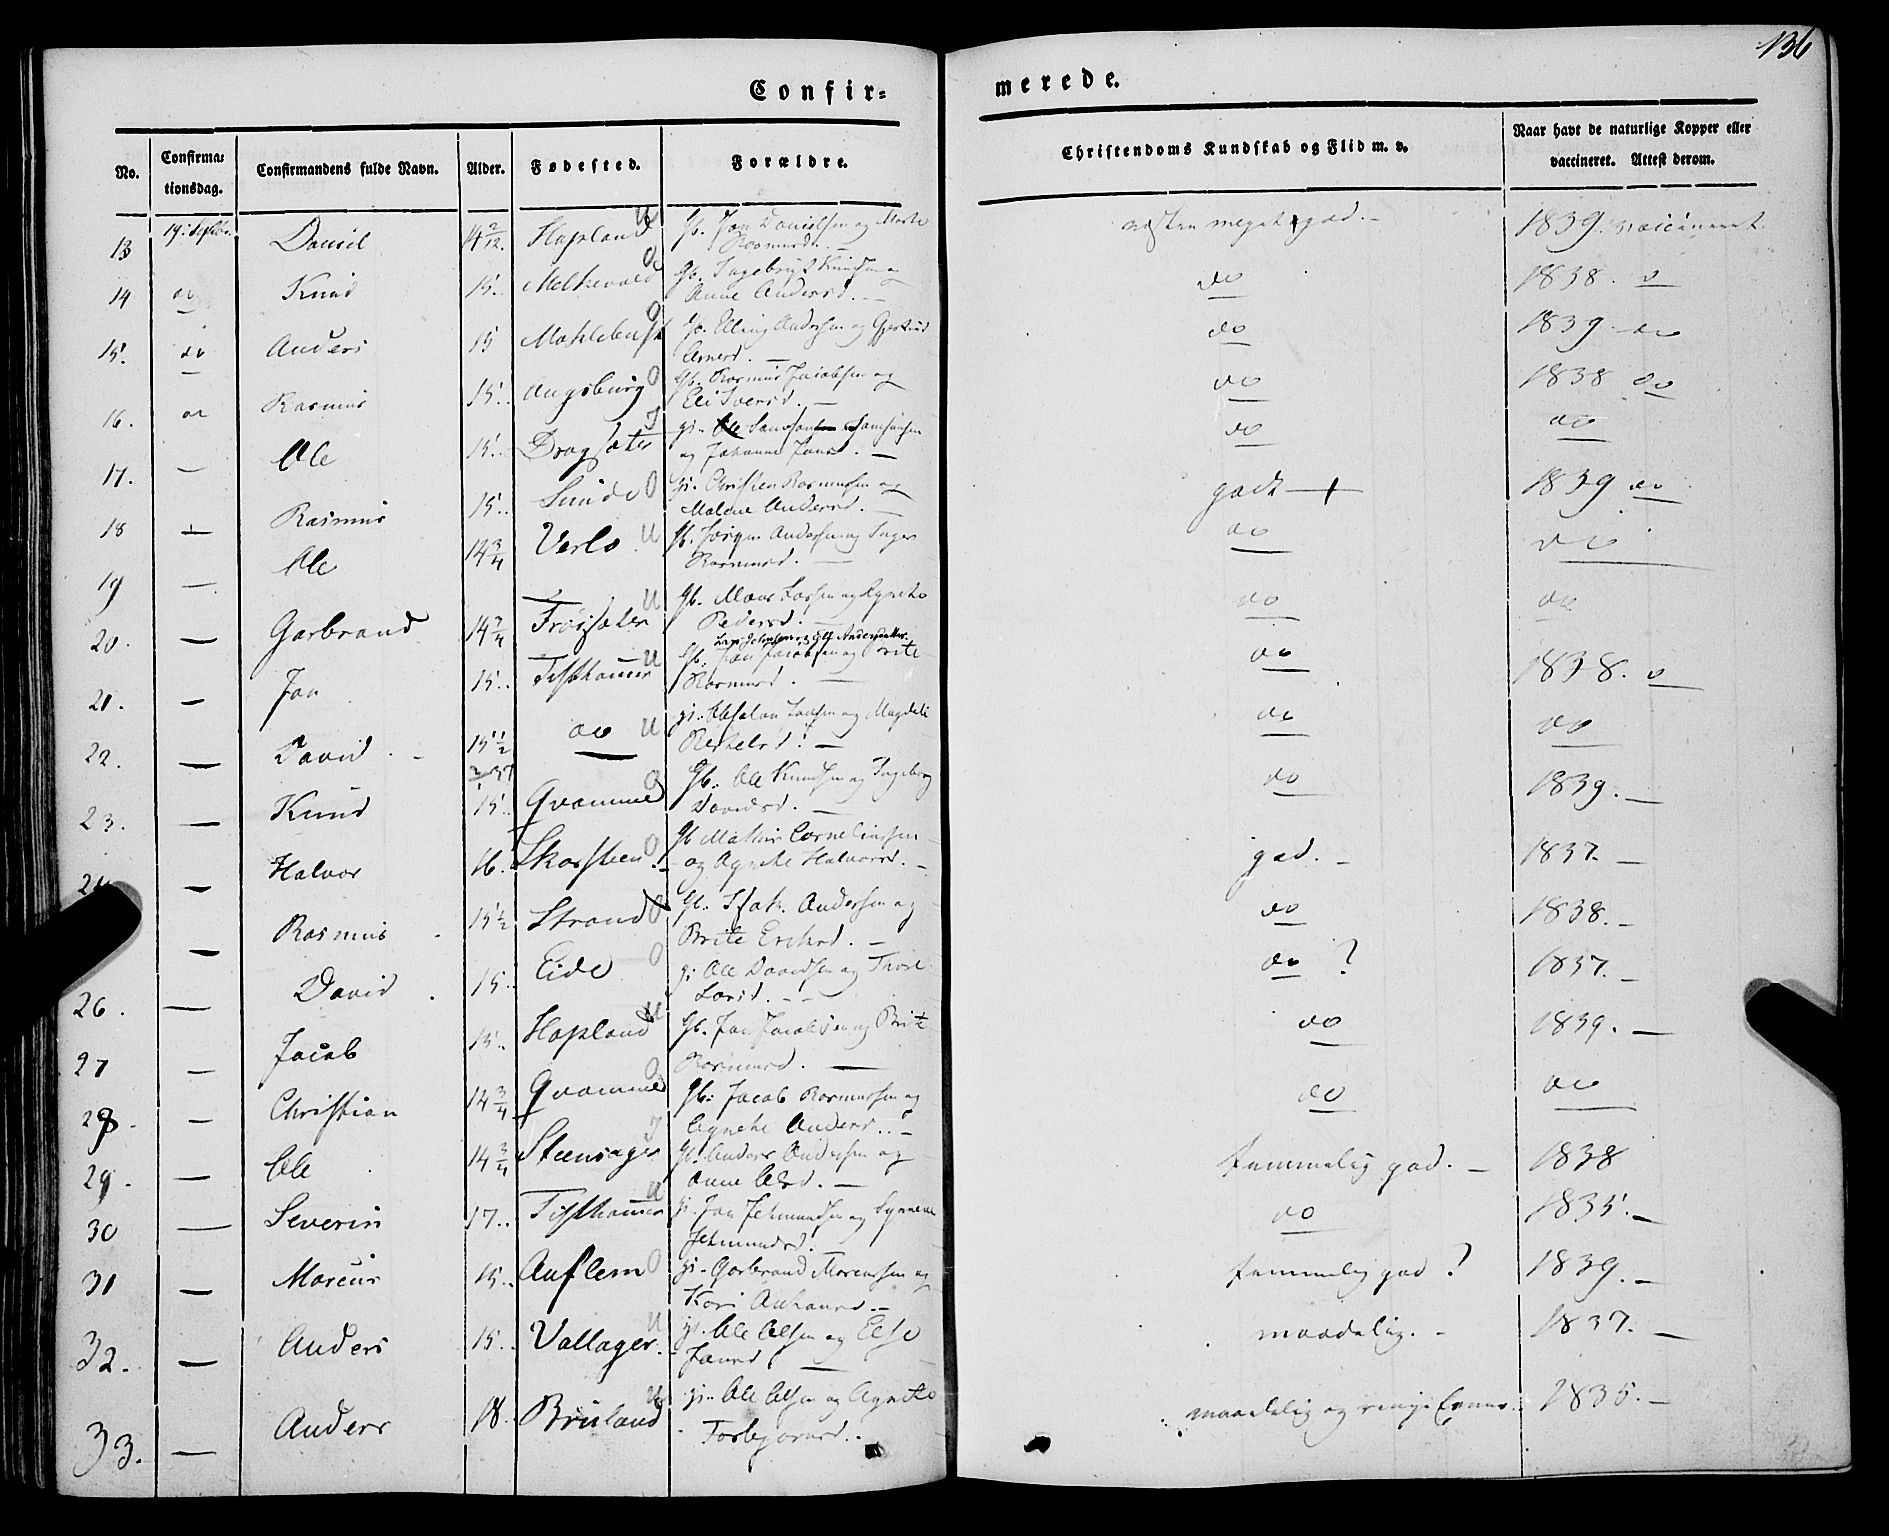 136
Confir= merede.
No. Confirma= tionsdag. Confirmandens fulde Navn. Alder. Fødested. Forældre. Christendoms Kundskab og Flid m. v. Naar havt de naturlige Kopper eller vaccineret. Attest derom.
13 19. Daniel 14 2/12. Hopland U Gb. Jon Danielsen og
Rasmusd. næsten meget god. - 1839. vaccineret
14 do Knud 15. O Gb. Ingebrigt Knudsen og
Anne Andersd. - do 1838. do
15. do Anders 15 O Gb. Elling Andersen og Gjertrud
do 1839 do
16. do Rasmus 15. Augsburg O Gb. Rasmus Jacobsen og
Eli Iversd. - do 1838 do
17. - Ole 15. Dragsæter I
og Johanne Jansd. - do do
18 - Rasmus 15. Sunde O gi. Christen Rasmussen og
Malene Andersd. - godt + 1839 do
19 - Ole 14 3/4 Verlo U Gb. Jørgen Andersen og Inger
Rasmusd. - do do
20. - Garbrand 14 3/4 Frøisæter U Gb. Mons Larsen og Agnete
Pedersd. - do do
21. - Jon 15. Tisthammer U Gb. Jon Jacobsen og Brite
Rasmusd. - do 1838. do
22. - David 15 1/2 do U gi. Absalon Jonsen og Magdeli
do do
23. - Knud 15. Qvamme O Gb. Ole Knudsen og Ingeborg
Davidsd. - do 1839. -
24 - Halvor 16. Skorsteen O Gb Mathis Corneliussen
og Agnete Halvorsd. - god. - 1837. -
- Rasmus 15 1/2 Strand O Gb. Isak Andersen og
Brite Erichsd. - do 1838. -
26. - David 15. Eide O gi. Ole Davidsen og
Larsd. - do ? 1837. -
27 - Jacob 15. Hopland U Gb. Jon Jacobsen og Brite
Rasmusd. - do 1839. -
28. - Christian 14 3/4 Qvamme O Gb. Jacob Rasmussen og
Agnete Andersd. - do do
29. - Ole 14 3/4 Steensager I Gb. Anders Andersen og
Anne Olsd. - temmelig god. - 1838
30 - Severin 17. Tisthammer U gi. Jon Jetmundsen og Synneve
Jetmundsd. do 1835. -
31 - Marcus 15. Auflem O gi. Garbrand Marcussen og
Kari Anthonsd. - temmelig god ? 1839. -
32. - Anders 15. Vallager U gi. Ole Olsen og Else
Jansd - maadelig. - 1837. -
33. - Anders 18. Bruland U gi. Ole Olsen og Agnete
Torbjørnsd. maadelig og ringe Evner. 1835. -